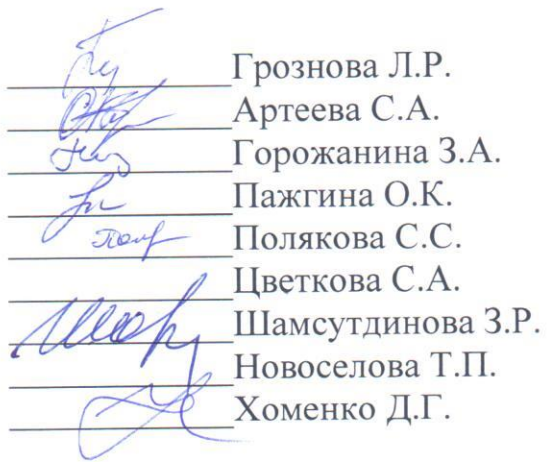 Грознова Л.Р.
Артеева С.А.
Горожанина З.А.
Пажгина О.К.
Полякова С.С.
Цветкова С.А.
Шамсутдинова З.Р.
Новоселова Т.П.
Хоменко Д.Г.